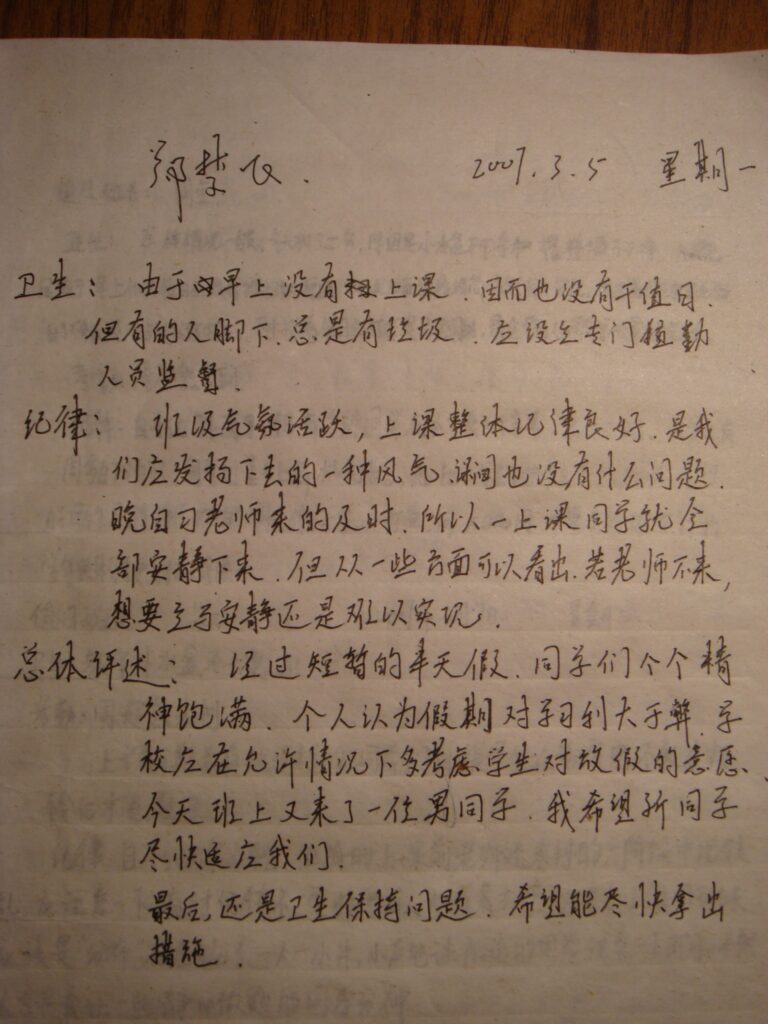 郑楚飞. 2007.3.5 星期一
卫生: 由于早上没有上课.因而也没有干值日.
但有的人脚下.总是有垃圾.应设立专门值勤
人员监督.
纪律: 班级气氛活跃,上课整体纪律良好.是我
们应发扬下去的一种风气.课间也没有什么问题.
晚自习老师来的及时.所以一上课同学就全
部安静下来.但从一些方面可以看出.若老师不来,
想要立马安静还是难以实现.
总体评述: 经过短暂的半天假.同学们个个精
神饱满.个人认为假期对学习利大于弊.学
校应在允许情况下多考虑学生对放假的意愿.
今天班上又来了一位男同学.我希望新同学
尽快适应我们.
最后,还是卫生保持问题.希望能尽快拿出
措施.